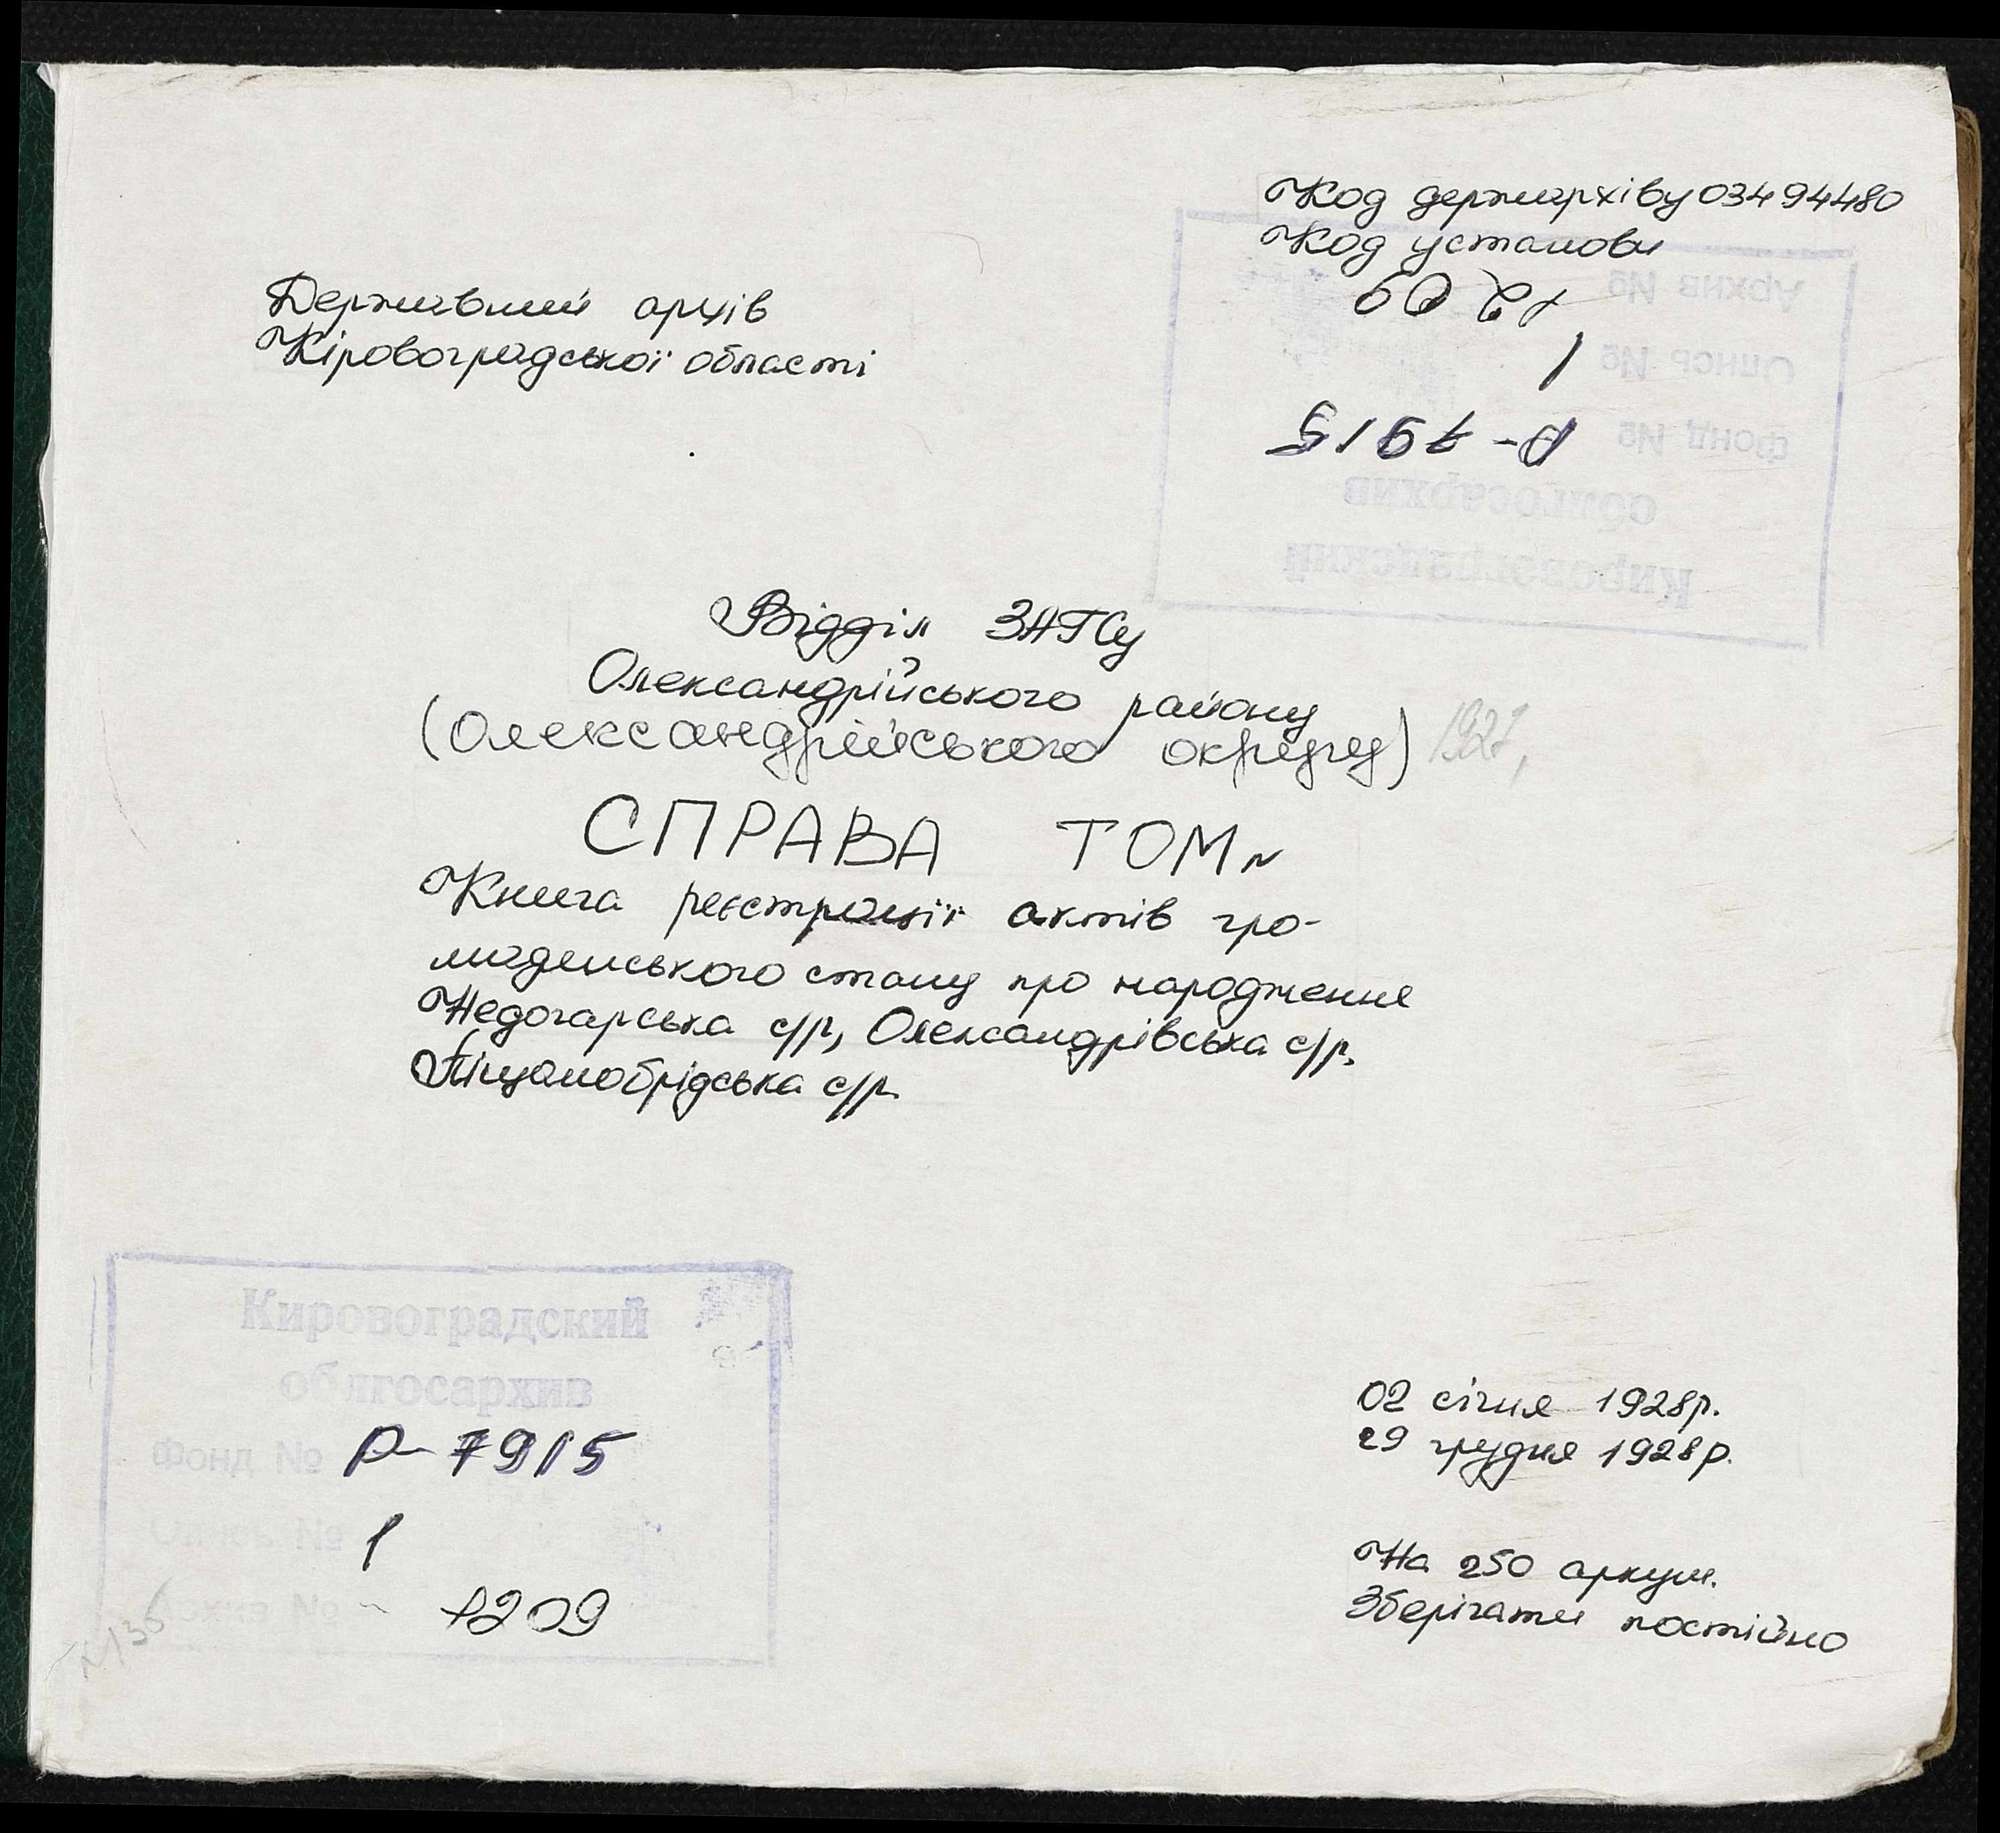 Код держархіву 03494480
Код установи
Державний архів
Кіровоградської області
Архив № 1209
Опись № 1
Фонд № Р-7915
облгосархив
Кировоградский
Відділ ЗАГСу
Олександрійського району
(Олександрійського округу) 1927,
СПРАВА ТОМ№
Книга реєстрації актів гро-
мадянського стану про народження
Недогарська с/р, Олександрівська с/р,
Піщанобрідська с/р.
Кировоградский
облгосархив
Фонд № Р-7915
Опись № 1
Архив № 1209
02 січня 1928р.
29 грудня 1928р.
На 250 аркуш.
Зберігати постійно